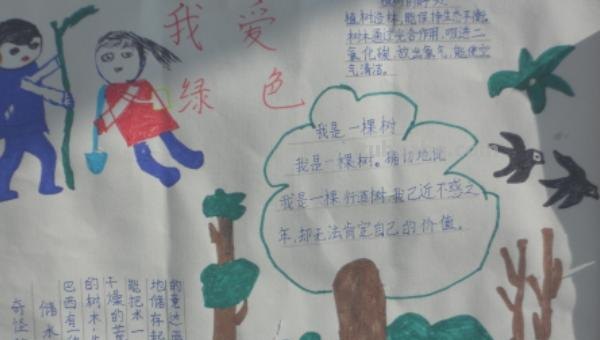 我爱
绿色
植树造林,能保持生态平衡。
树木通过光合作用,吸进二
氧化碳,放出氧气,能使空
气清洁。
我是一棵树
我是一棵树。确切地说
我是一棵行道树.我已近不惑之
年,却无法肯定自己的价值。
的
地储存起
能把水一
干燥的
的树木,生
巴西有一
储水
奇怪